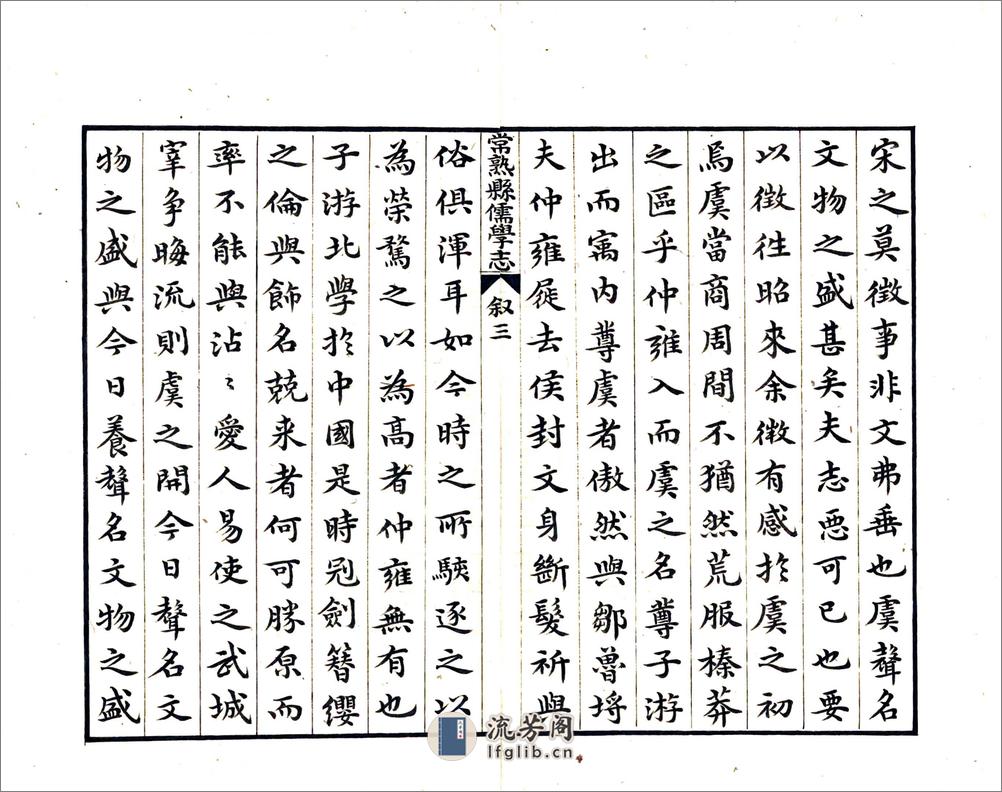 宋之莫徵事非文弗垂也虞聲名
文物之盛甚矣夫志惡可已也要
以徵徃昭來余徴有感於虞之初
焉虞當商周間不猶然荒服榛莽
之區乎仲雍入而虞之名尊子游
出而寓内尊虞者傲然與鄒魯埒
夫仲雍屣去侯封文身斷髮祈與
常熟縣儒學志
叙三
俗俱渾耳如今時之所駛逐之以
為榮騖之以為高者仲雍無有也
子游北學於中國是時冠劍簪纓
之倫與飾名兢来者何可勝原而
率不能與沾〻愛人易使之武城
宰争晦流則虞之開今日聲名文
物之盛與今日養聲名文物之盛
流芳阁
lfglib.cn